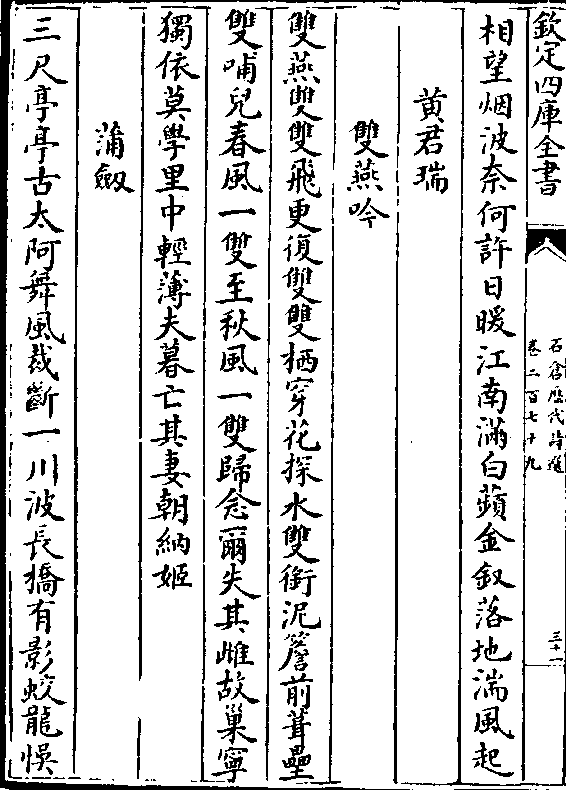 欽定四庫全書
石倉歷代詩選
卷二百七十九
三十一
相望烟波奈何許日暖江南滿白蘋金釵落地湍風起
黄君瑞
雙燕吟
雙燕雙雙飛更復雙雙栖穿花探水雙銜泥簷前葺壘
雙哺兒春風一雙至秋風一雙歸念爾失其雌故巢寧
獨依莫學里中輕薄夫暮亡其妻朝納姬
蒲劒
三尺亭亭古太阿舞風裁斷一川波長橋有影蛟龍懼